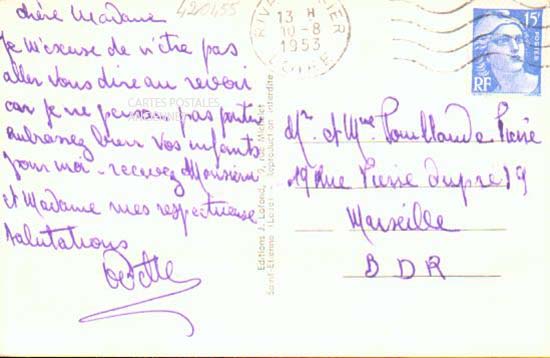 chère Madame
Je m'excuse de n'être pas
aller vous dire au revoir
car je ne pensais pas partir
embrassez bien vos infants
pour moi - recevez Monsieur
et Madame mes respectueuse
salutations
Odette
420455
CARTES POSTALES
13 H
10-8
1953
LOIRE
15F
POSTES
RF
Mr et Mme Pierre
19 Rue Pierre dupre 19
Marseille
B D R
Editions J. Lafond, rue Michelet
Saint-Etienne (Loire) Reproduction interdite